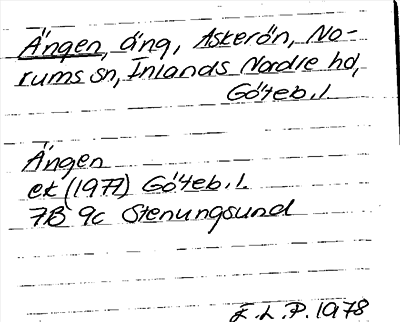 Ängen, äng, Askerön, No-
rums sn, Inlands Nordre hd,
Göteb. l.
Ängen
ek (1977) Göteb. l.
7B 9c Stenungsund
E.L.P. 1978